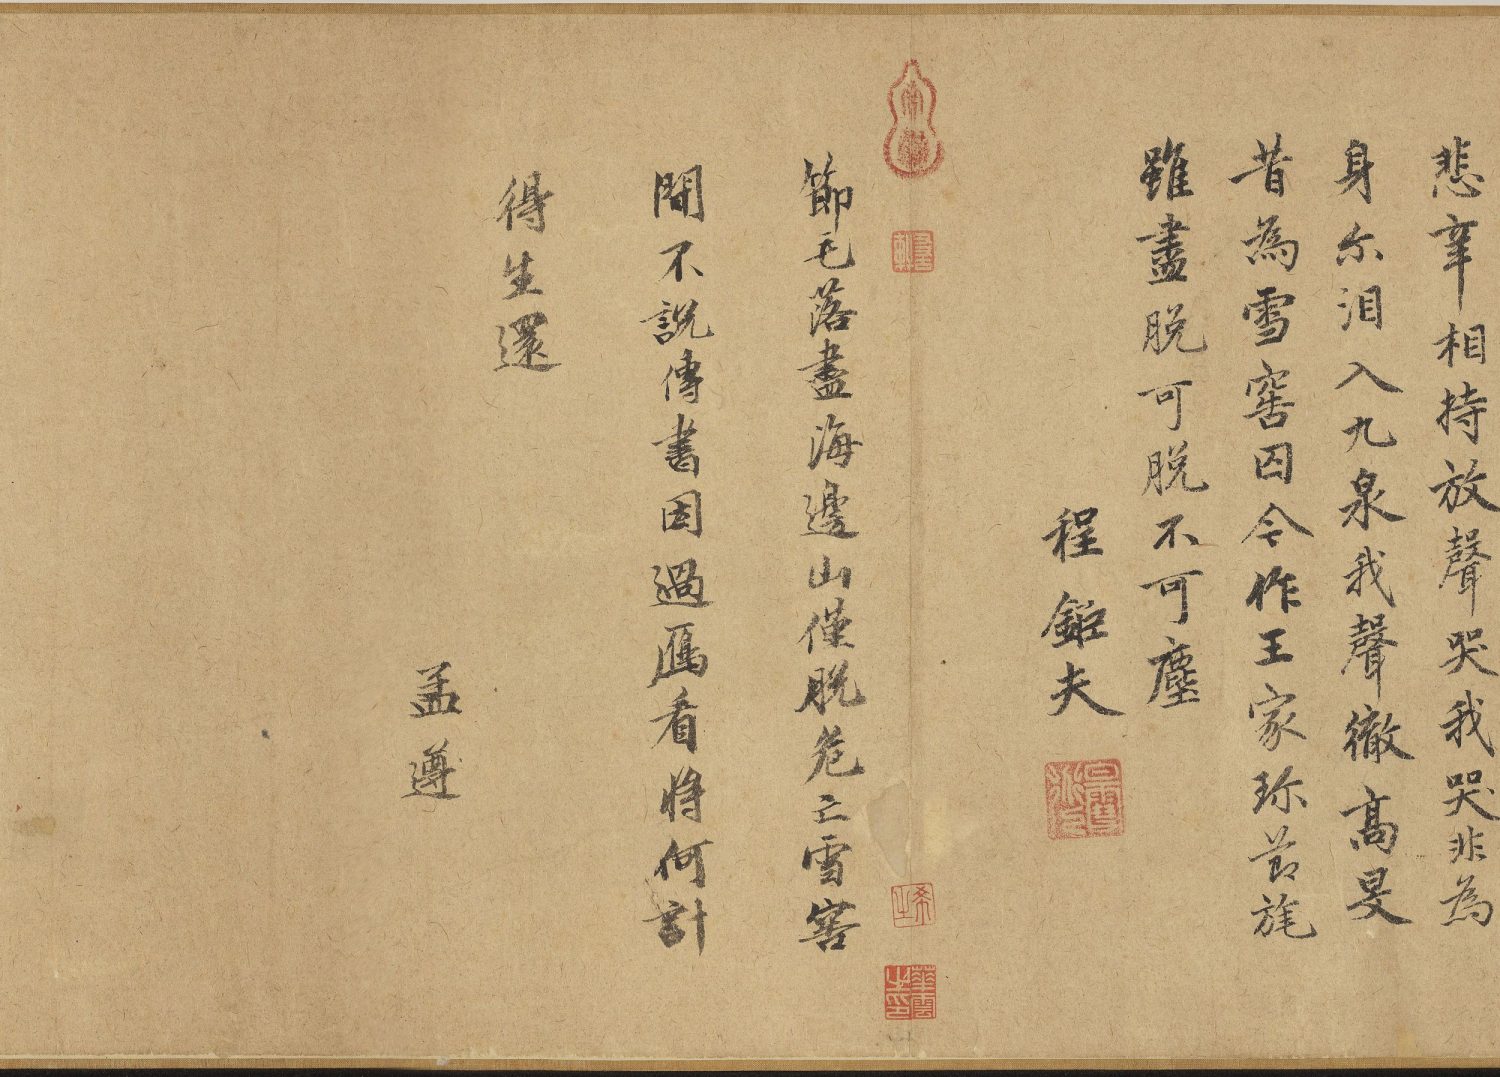 悲辛相持放聲哭我哭非為
身尔泪入九泉我聲徹高旻
昔為雪窖囚今作王家珎莭旄
雖盡脱可脱不可塵
程鉅夫
節毛落盡海邊山僅脱危亡雪窖
間不說傳書因過鴈看將何計
得生還
孟遵